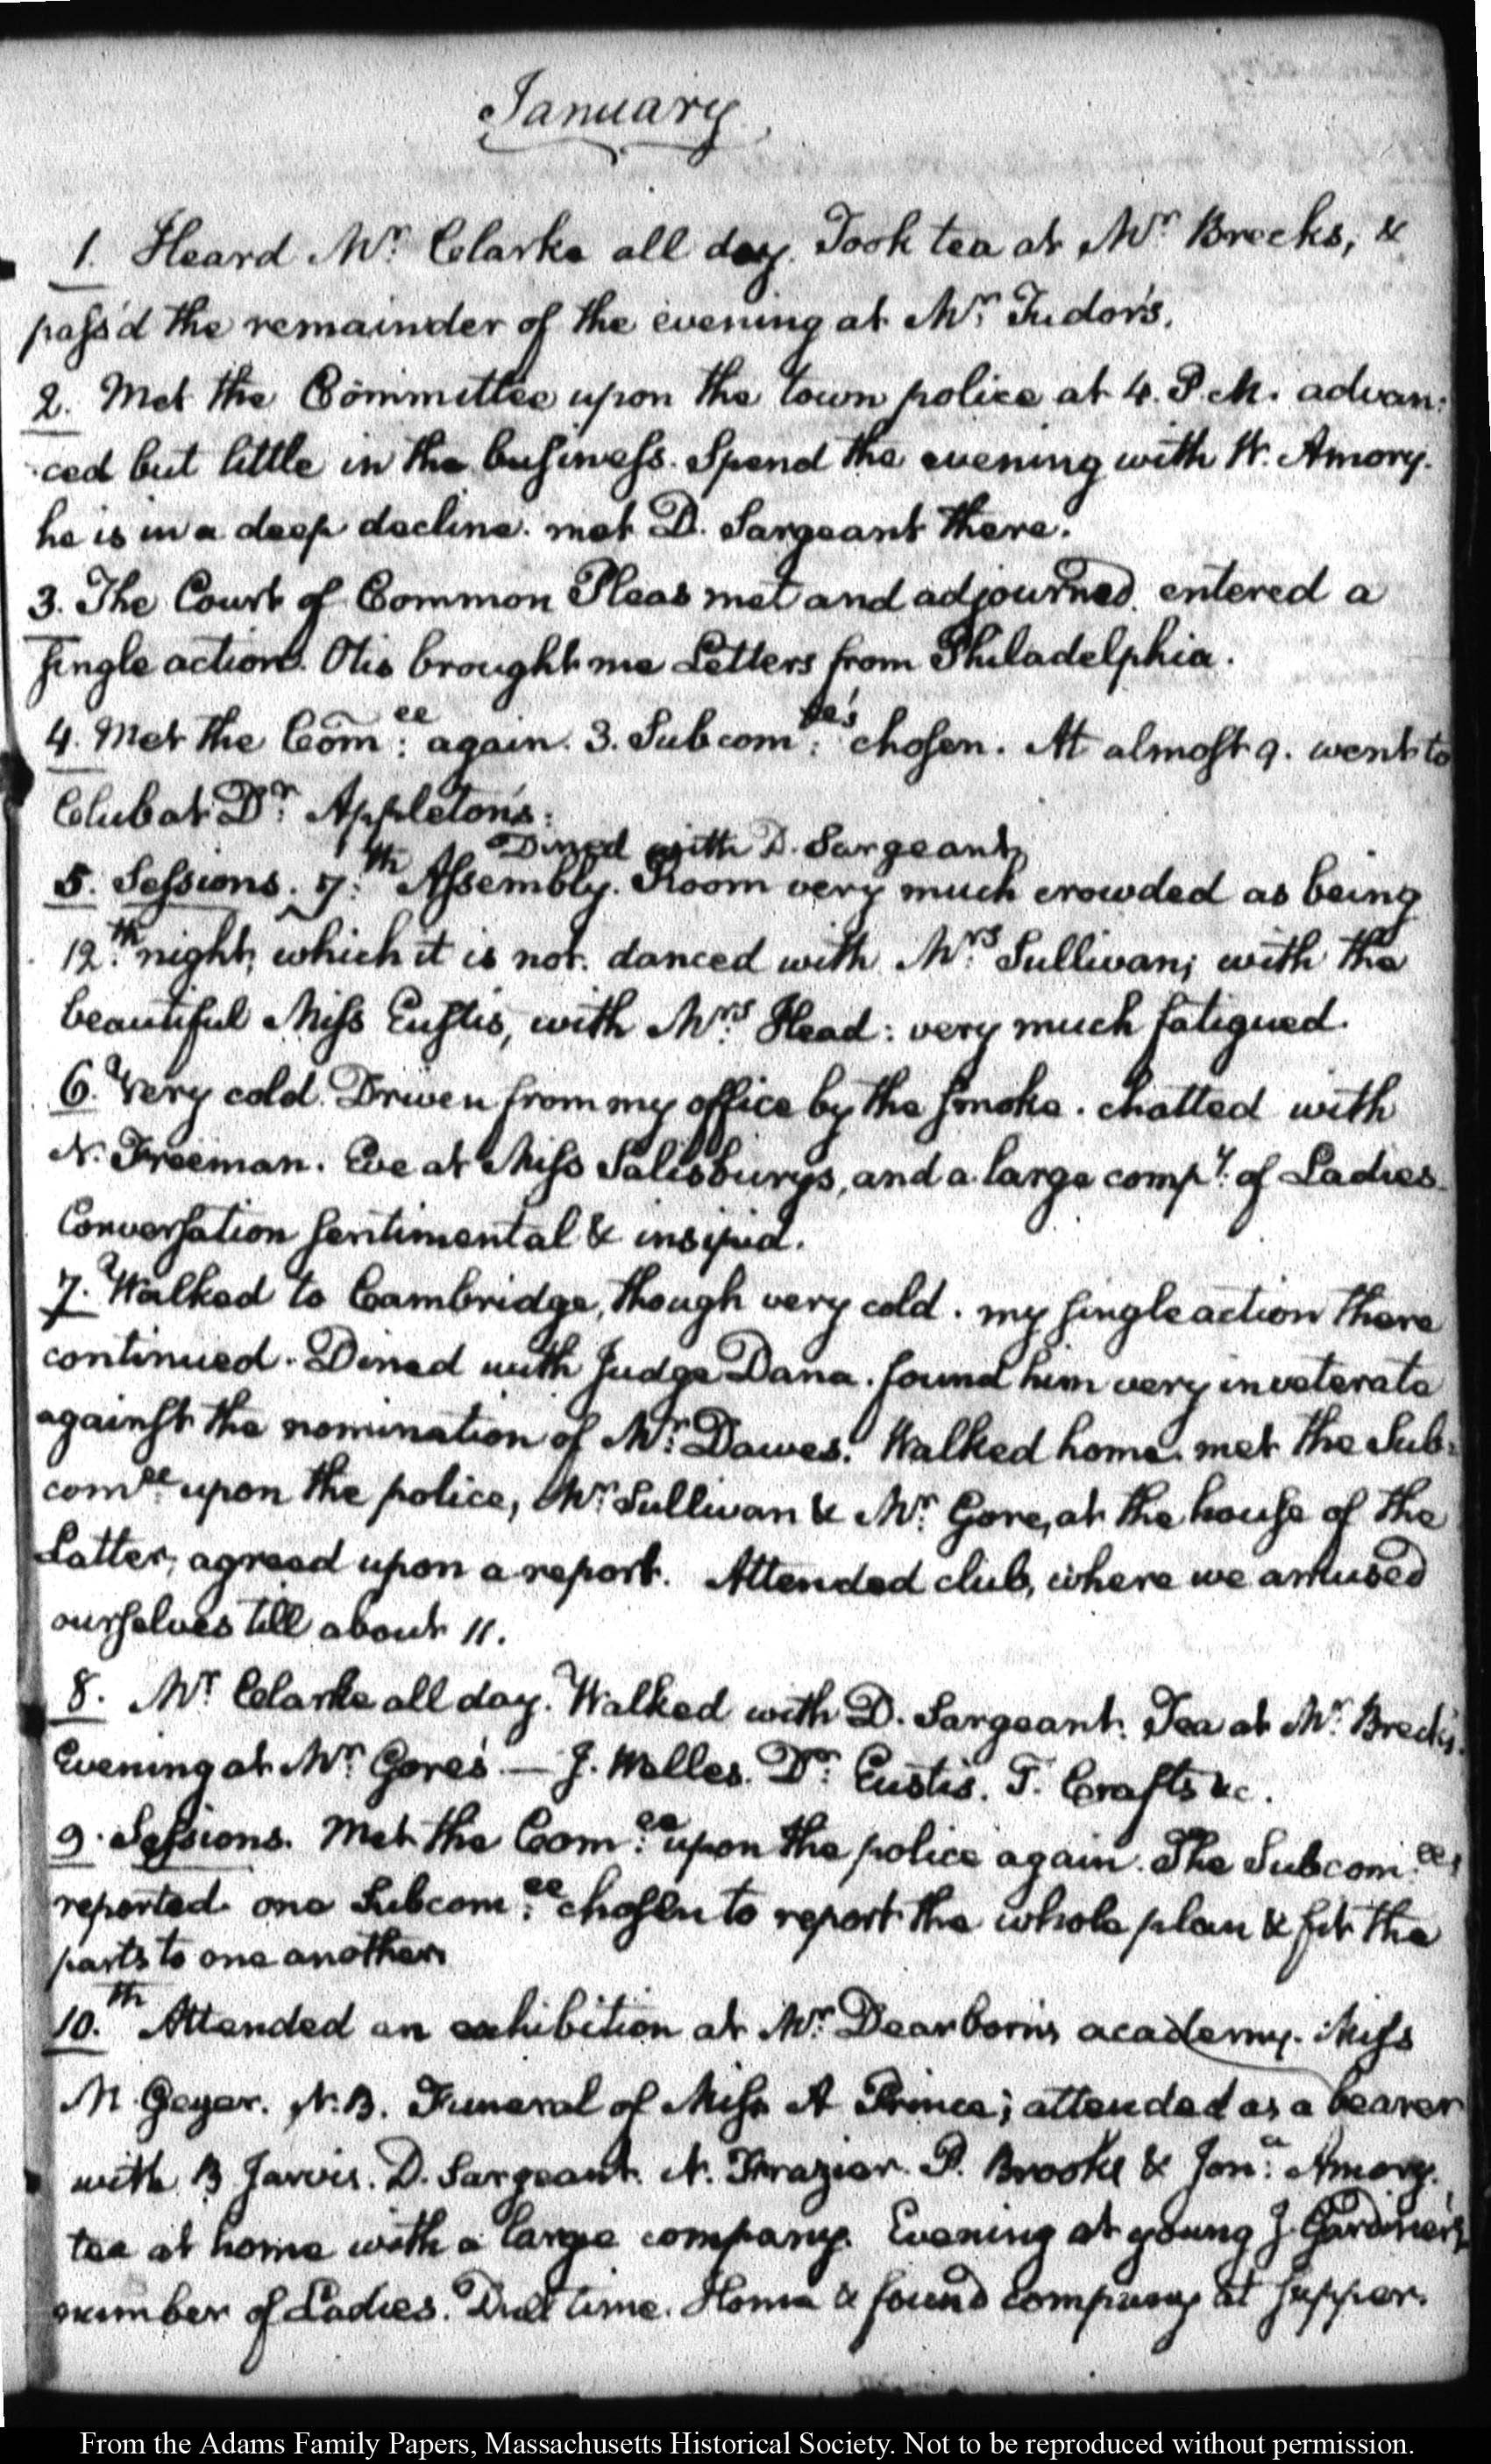 January
1. Heard Mr. Clarke all day. Took tea at Mr. Brecks, &
pass'd the remainder of the evening at Mr. Tudor's.
2. Met the Committee upon the town police at 4. P.M. advan:
ced but little in the business. Spend the evening with W. Amory.
he is in a deep decline. met D. Sargeant there.
3. The Court of Common Pleas met and adjourned. entered a
single action. Otis brought me Letters from Philadelphia.
4. Met the Com:ee again. 3. Subcom:tee's chosen. At almost 9. went to
Club at Dr. Appleton's.
Dined with D. Sargeant
5. Sessions. 7:th Assembly. Room very much crowded as being
12:th night, which it is not. danced with Mrs. Sullivan; with the
beautiful Miss Eustis, with Mrs. Head: very much fatigued.
6. Very cold. Driven from my office by the smoke. chatted with
N. Freeman. Eve at Miss Salisburys, and a large compy. of Ladies.
Conversation sentimental & insipid.
7. Walked to Cambridge, though very cold. my single action there
continued. Dined with Judge Dana. found him very inveterate
against the nomination of Mr. Dawes. Walked home. met the Sub:
comee. upon the police, Mr. Sullivan & Mr. Gore, at the house of the
Latter, agreed upon a report. Attended club, where we amused
ourselves till about 11.
8. Mr. Clarke all day. Walked with D. Sargeant. Tea at Mr. Breck's.
Evening at Mr. Gore's — J. Welles. Dr. Eustis. T. Crafts &c.
9. Sessions. Met the Com:ee upon the police again. The Subcom:ees
reported. one Subcom:ee chosen to report the whole plan & fit the
parts to one another.
10.th Attended an exhibition at Mr. Dearborn's academy. Miss
M Geyer. N.B. Funeral of Miss A Prince; attended as a bearer
with B Jarvis. D. Sargeant. N. Frazier. P. Brooks & Jon:a Amory.
tea at home with a large company. Evening at young J. Gardner's
number of Ladies. Dull time. Home & found company at supper.
From the Adams Family Papers, Massachusetts Historical Society. Not to be reproduced without permission.